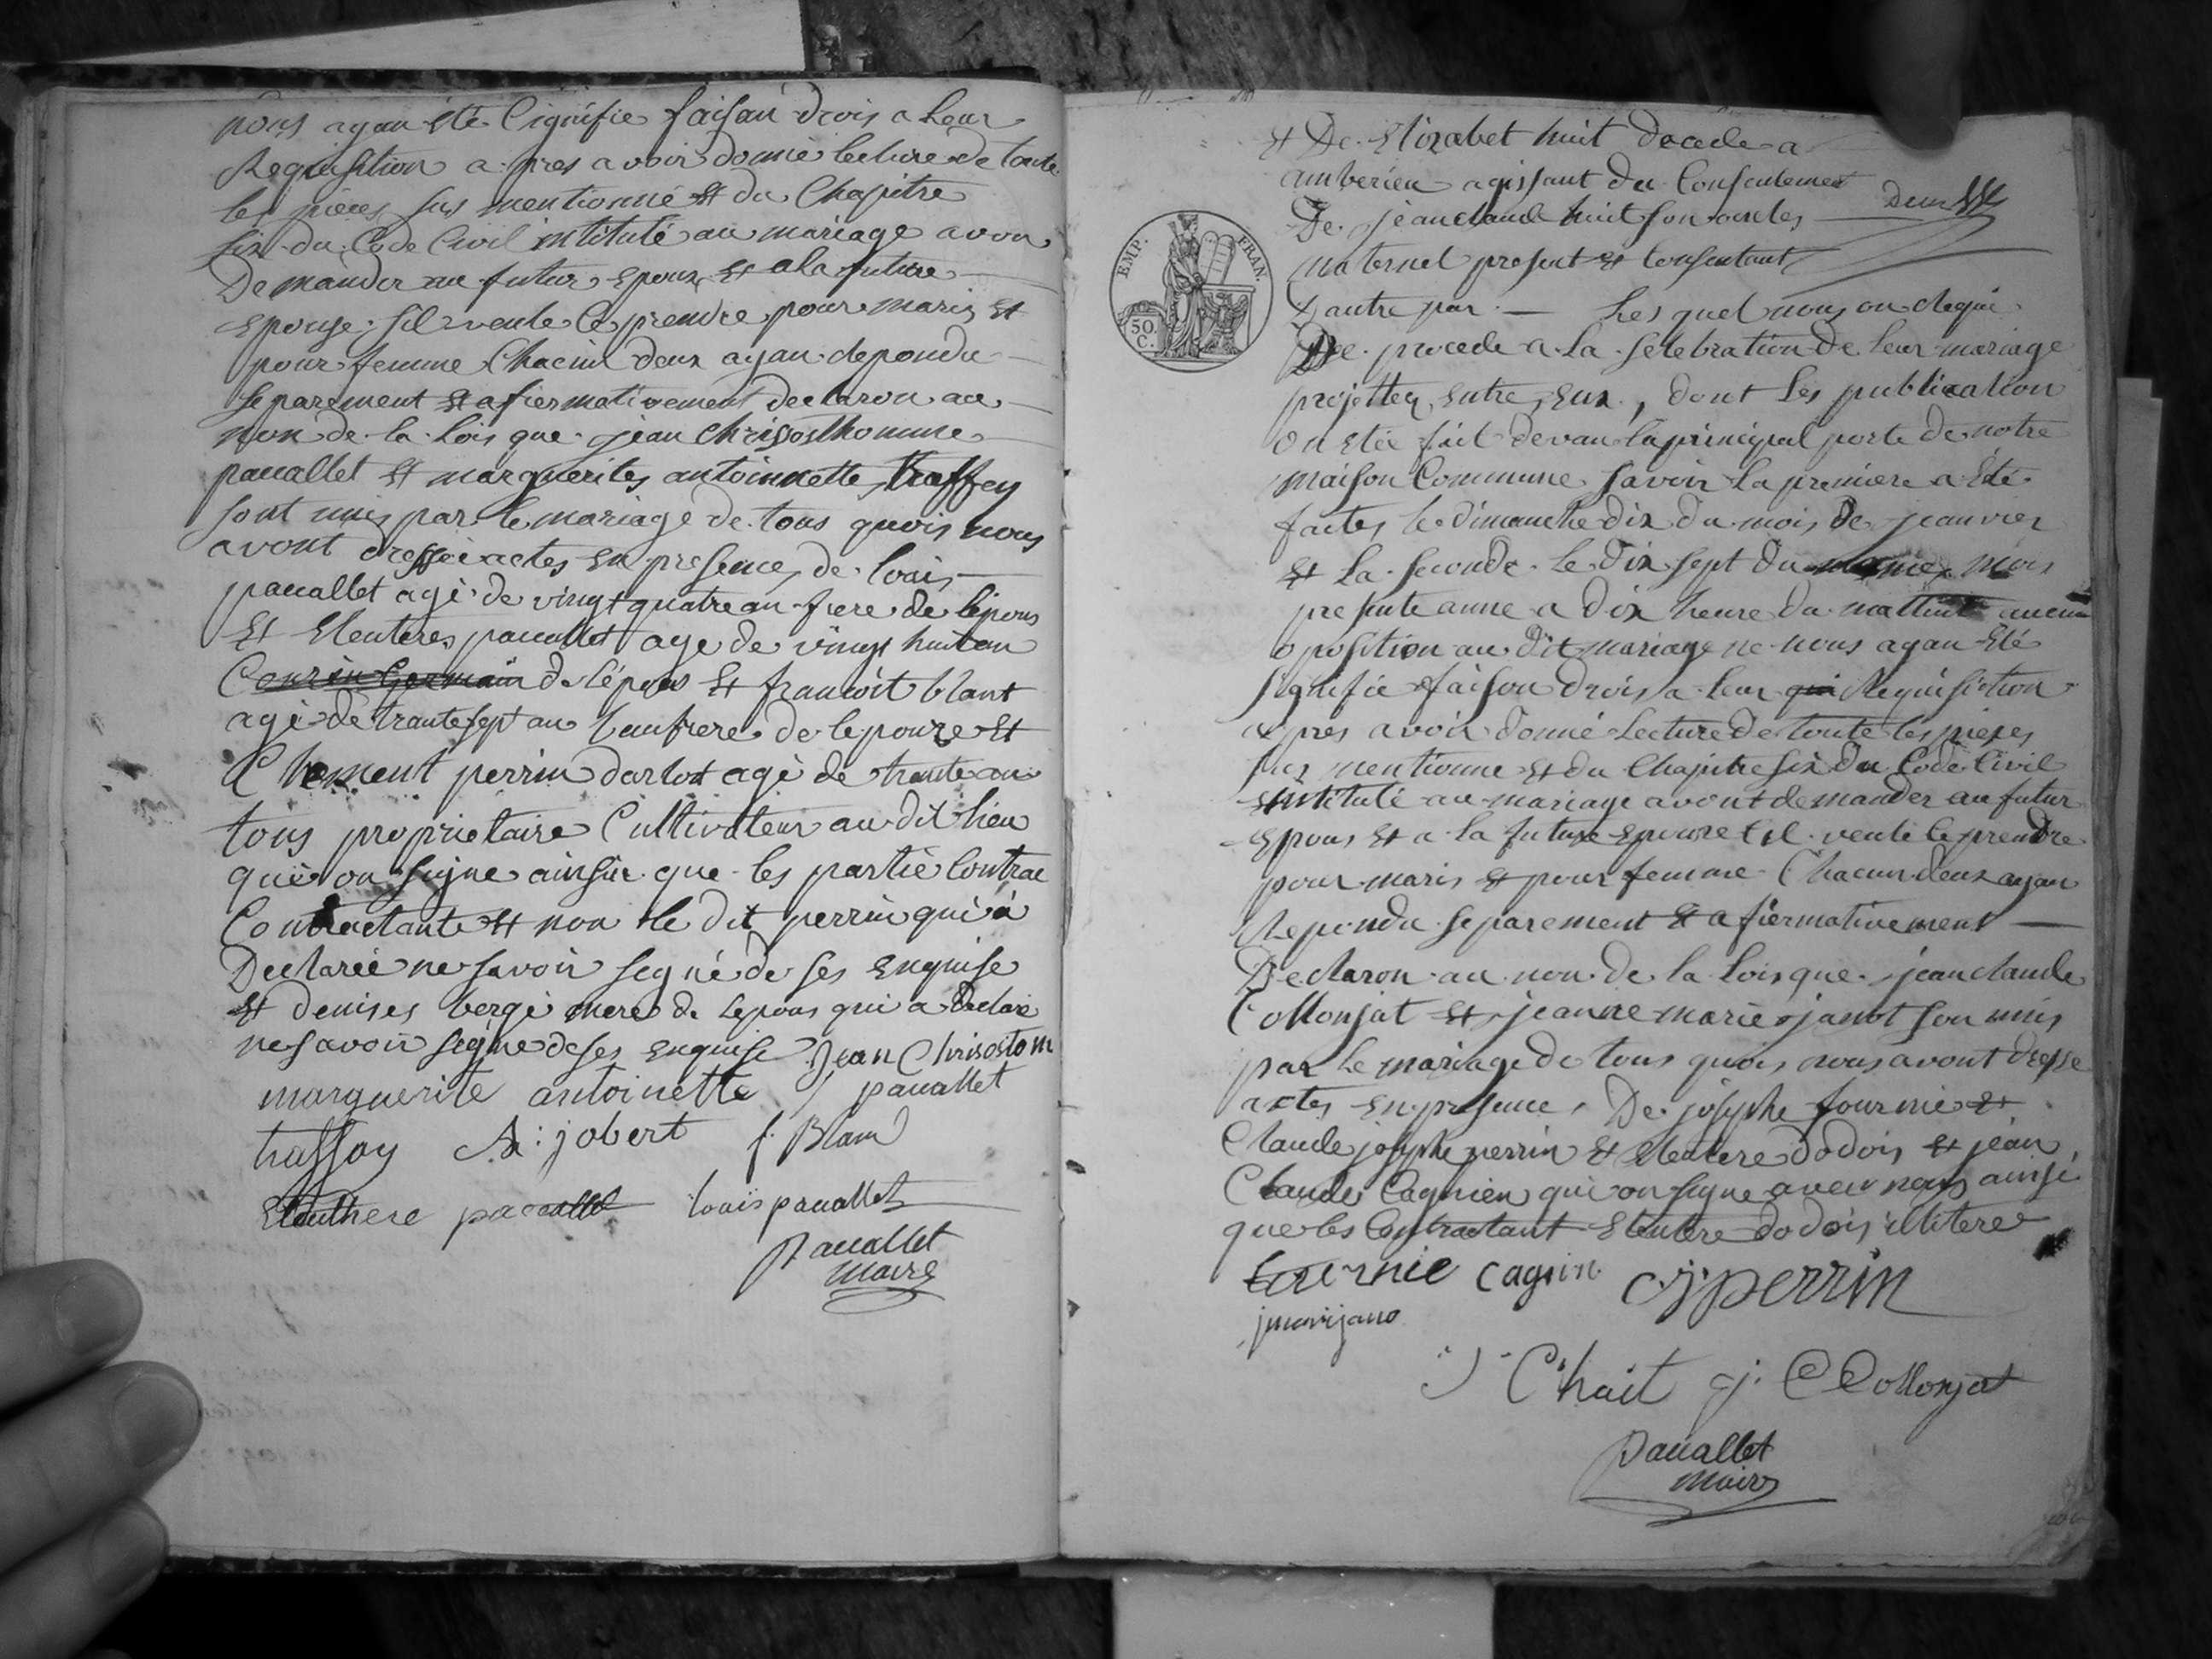 nous ayan été Cignifie faisan drois a leur
Requisition a pres avoir donné lecture de toute
les pieces sus mentionné et du Chapitre
six du Code Civil intitulé au mariage avon
Demander au futur epoux et a la future
epouse sil veule ce prendre pour maris et
pour femme Chacun deux ayan deponda
separement et afiermativement declaron au
non de la lois que jean Chrisosthomme
pauallet et marguerites antoinnette traffey
sont unis par le mariage de tous quois nous
avont dressé actes en presence de louis
pauallet agé de vingt quatre an frere de lépous
et Eleuteres pauallet age de vingt huit an
Couzin Germain de lépous et francoit blant
agé de trante sept an baufrere de lepouze et
Clement perrin dartot agé de trante an
tous proprietaire Cultivateur au dit lieu
qui on signe ainsie que les partie Contrac
Contractante et non le dit perrin qui a
Declareé ne savoir segné de ses enquise
et denises bergé mere de lepous qui a declare
ne savoir segne de ses enquise Jean Chrisostom
marguerite antoinette pauallet
traffay A: jobert f. Blanc
Eleuthere pacuallet louis pauallet
Pauallet
Maire
et De Elizabet huit decede a
amberieu agissant du Consentement
De jean claude huit son oncles Deux
maternel present et Consentant
d'autre par — Les quel nous on requi
De procede a la selebration de leur mariage
projettez entre eux, dont les publication
on etée fait devan la principal porte de notre
maison Commune savoir la premiere a été
faites le dimanche dix du mois de jeanvier
et la seconde le dix sept du meme mois
presente anne a dix heure du mattint aucun
oposition au dit mariage ne nous ayan été
signifie faison drois a leur qui Requisiction
apres avoir donné Lecture de toute les pieses
sus mentionne et du Chapitre six du Code Civil
entitulé au mariage avont demander au futur
epous et a la future epouze sil veule ce prendre
pour maris et pour femme Chacun deux ayan
Repondu separement et afiermativement
Declaron au non de la lois que jean claude
Collonjat et jeanne marie janot son unis
par le mariage de tous quois nous avont dresse
actes en presence De josephe fournié et
Claude josephe perrin et Eleutere dodois et jean
Claude Cagnien qui on signe avec nous ainsi
que les Contractant Eleutere dodois illitere
fournié cagnin cj perrin
jmarijano
J C huit j. C Collonjat
Pauallet
Maire
EMP. FRAN.
50.
C.